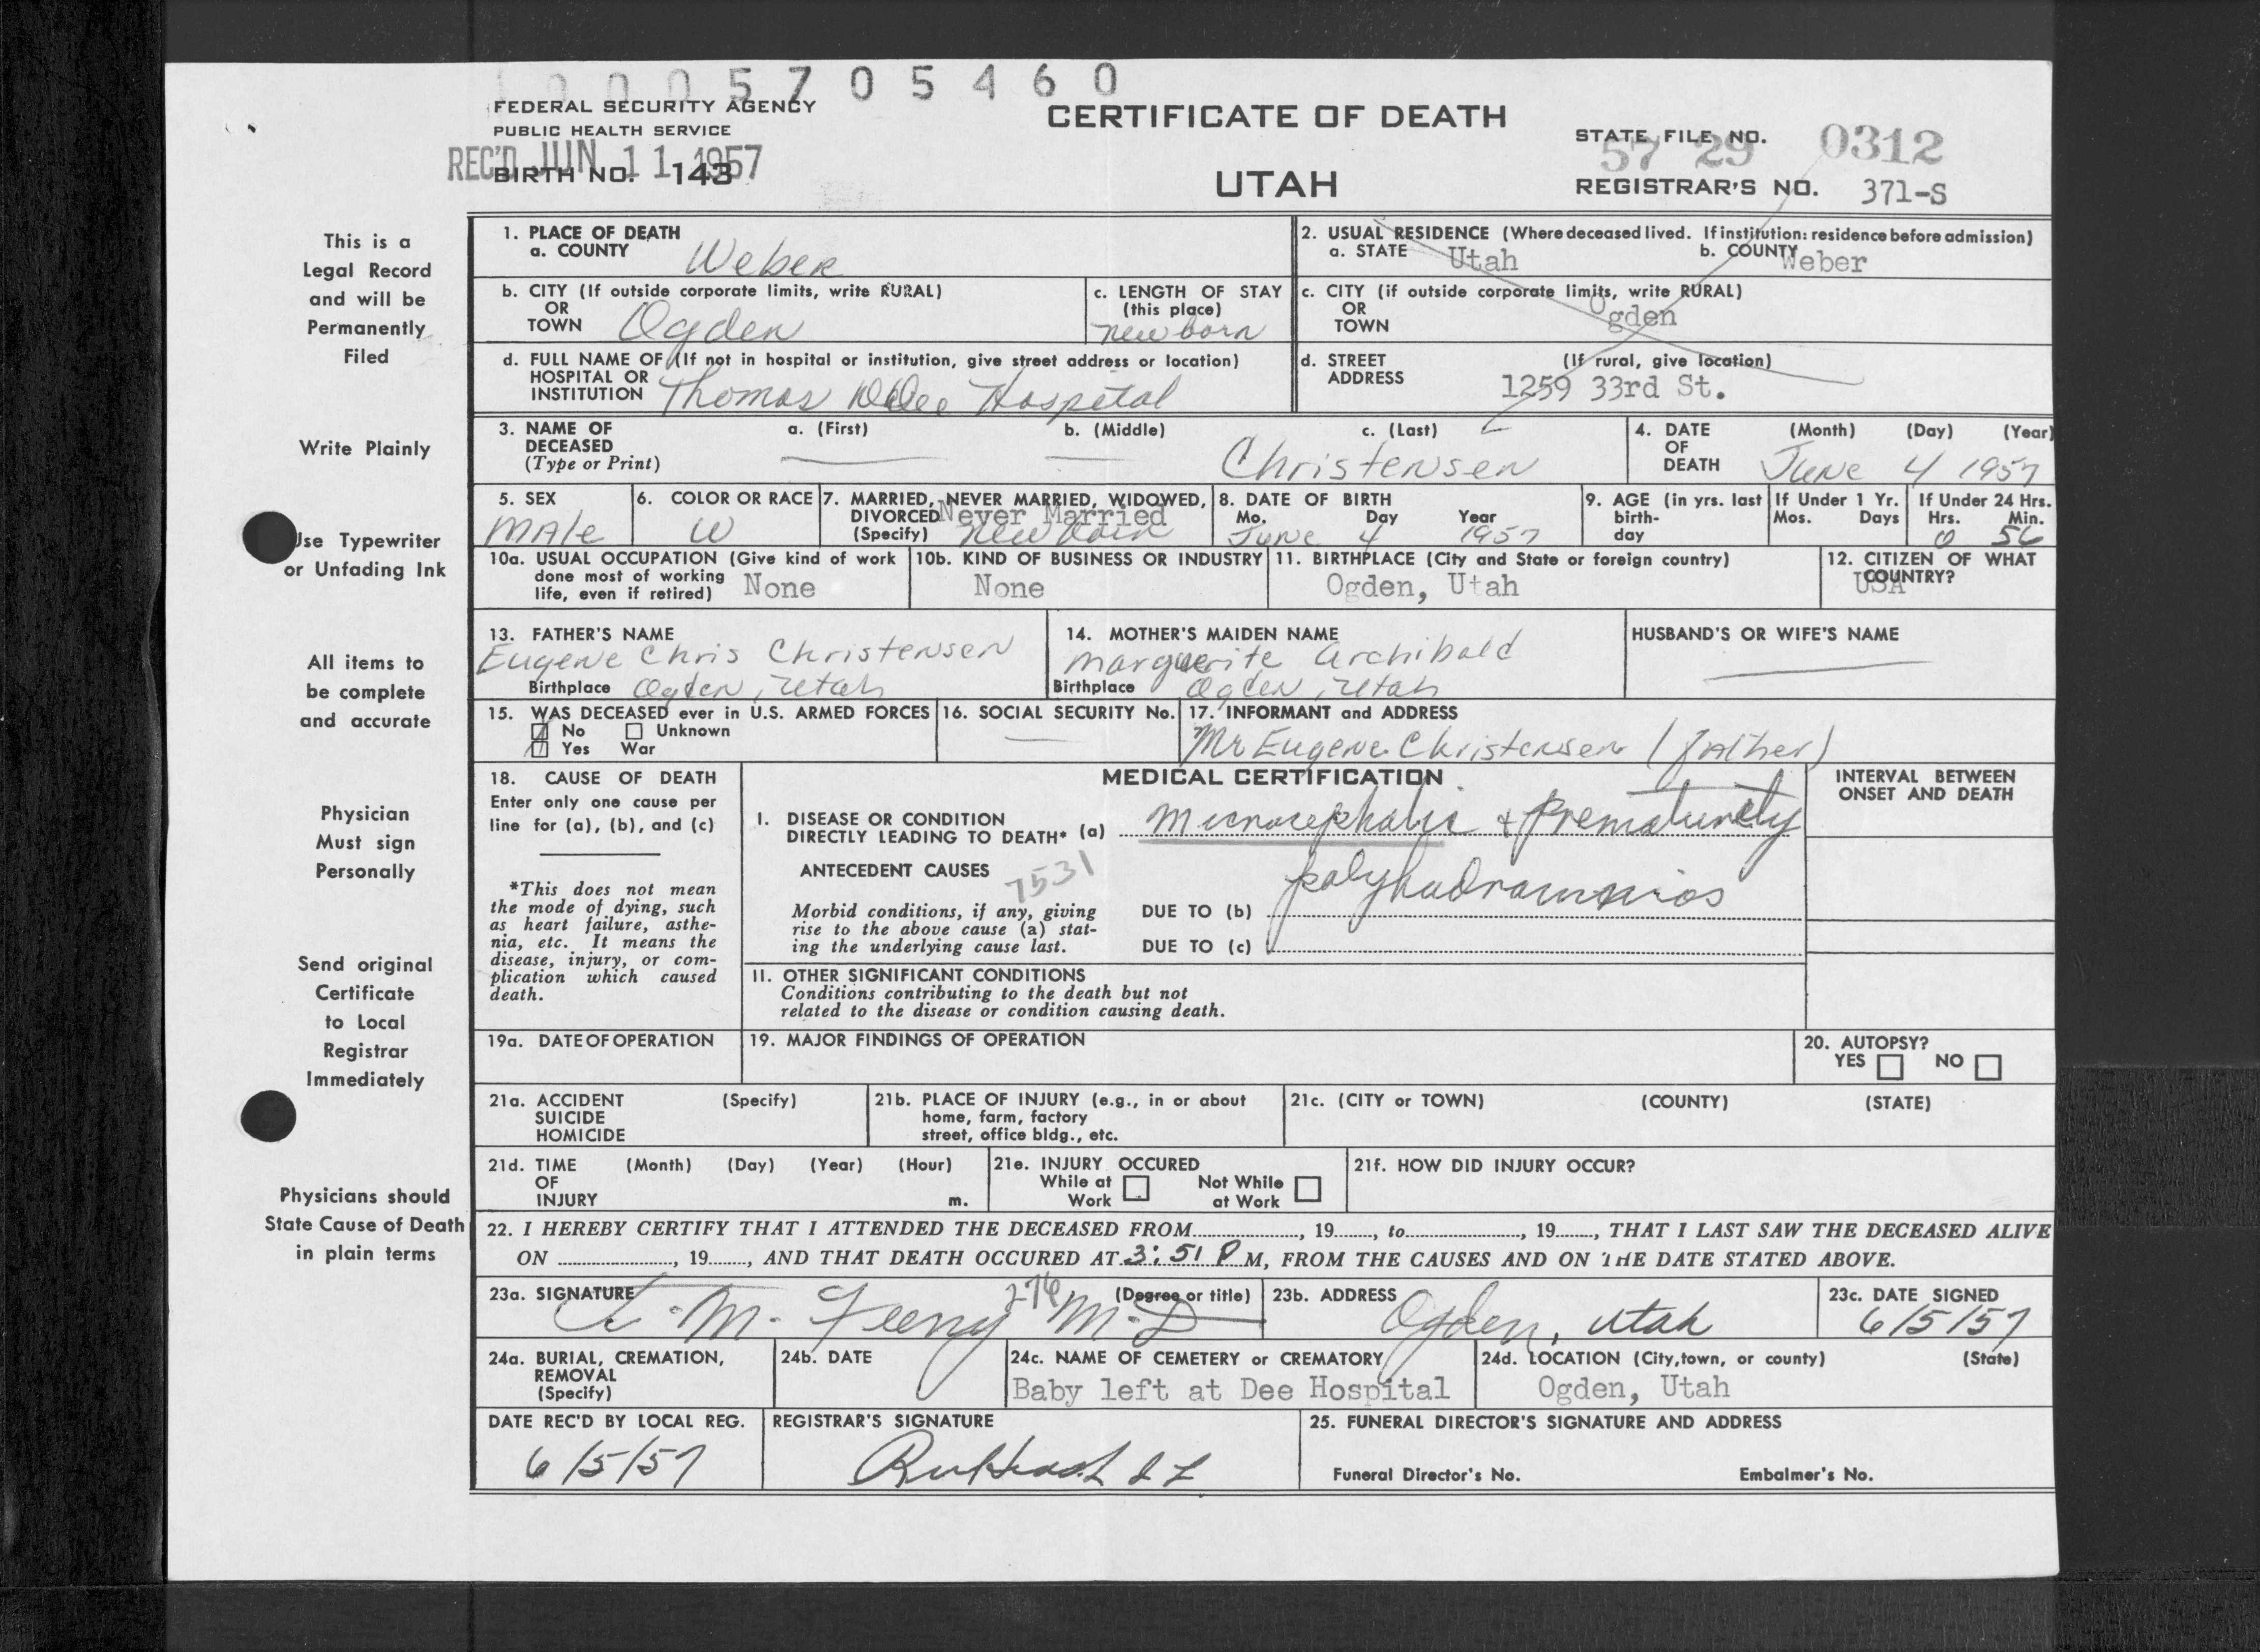 0 0 0 5 7 0 5 4 6 0
FEDERAL SECURITY AGENCY
PUBLIC HEALTH SERVICE
REC'D JUN 11 1957
BIRTH NO. 143
CERTIFICATE OF DEATH
UTAH
STATE FILE NO. 57 29 0312
REGISTRAR'S NO. 371-S
This is a
Legal Record
and will be
Permanently
Filed
Write Plainly
Use Typewriter
or Unfading Ink
All items to
be complete
and accurate
Physician
Must sign
Personally
Send original
Certificate
to Local
Registrar
Immediately
Physicians should
State Cause of Death
in plain terms
1. PLACE OF DEATH
a. COUNTY Weber
2. USUAL RESIDENCE (Where deceased lived. If institution: residence before admission)
a. STATE Utah b. COUNTY Weber
b. CITY (If outside corporate limits, write RURAL)
OR
TOWN Ogden
c. LENGTH OF STAY
(this place)
newborn
c. CITY (if outside corporate limits, write RURAL)
OR
TOWN Ogden
d. FULL NAME OF (If not in hospital or institution, give street address or location)
HOSPITAL OR
INSTITUTION Thomas D Dee Hospital
d. STREET (If rural, give location)
ADDRESS 1259 33rd St.
3. NAME OF a. (First) b. (Middle) c. (Last)
DECEASED
(Type or Print) Christensen
4. DATE (Month) (Day) (Year)
OF
DEATH June 4 1957
5. SEX
Male
6. COLOR OR RACE
W
7. MARRIED, NEVER MARRIED, WIDOWED,
DIVORCED Never Married
(Specify) New born
8. DATE OF BIRTH
Mo. Day Year
June 4 1957
9. AGE (in yrs. last
birth-
day
If Under 1 Yr.
Mos. Days
If Under 24 Hrs.
Hrs. Min.
0 56
10a. USUAL OCCUPATION (Give kind of work
done most of working
life, even if retired) None
10b. KIND OF BUSINESS OR INDUSTRY
None
11. BIRTHPLACE (City and State or foreign country)
Ogden, Utah
12. CITIZEN OF WHAT
COUNTRY?
USA
13. FATHER'S NAME
Eugene Chris Christensen
Birthplace Ogden, Utah
14. MOTHER'S MAIDEN NAME
Marguerite Archibald
Birthplace Ogden, Utah
HUSBAND'S OR WIFE'S NAME
15. WAS DECEASED ever in U.S. ARMED FORCES
No Unknown
Yes War
16. SOCIAL SECURITY No.
17. INFORMANT and ADDRESS
Mr Eugene Christensen (father)
18. CAUSE OF DEATH
Enter only one cause per
line for (a), (b), and (c)
*This does not mean
the mode of dying, such
as heart failure, asthe-
nia, etc. It means the
disease, injury, or com-
plication which caused
death.
MEDICAL CERTIFICATION
INTERVAL BETWEEN
ONSET AND DEATH
I. DISEASE OR CONDITION
DIRECTLY LEADING TO DEATH* (a) Microcephalic + prematurity
ANTECEDENT CAUSES 7531
Morbid conditions, if any, giving
rise to the above cause (a) stat-
ing the underlying cause last.
DUE TO (b) polyhydramnios
DUE TO (c)
II. OTHER SIGNIFICANT CONDITIONS
Conditions contributing to the death but not
related to the disease or condition causing death.
19a. DATE OF OPERATION
19. MAJOR FINDINGS OF OPERATION
20. AUTOPSY?
YES NO
21a. ACCIDENT (Specify)
SUICIDE
HOMICIDE
21b. PLACE OF INJURY (e.g., in or about
home, farm, factory
street, office bldg., etc.
21c. (CITY or TOWN) (COUNTY) (STATE)
21d. TIME (Month) (Day) (Year) (Hour)
OF
INJURY m.
21e. INJURY OCCURED
While at Not While
Work at Work
21f. HOW DID INJURY OCCUR?
22. I HEREBY CERTIFY THAT I ATTENDED THE DECEASED FROM........, 19......, to........, 19......, THAT I LAST SAW THE DECEASED ALIVE
ON ........, 19......, AND THAT DEATH OCCURED AT 3:51 P M, FROM THE CAUSES AND ON THE DATE STATED ABOVE.
23a. SIGNATURE 276 (Degree or title)
M. Feeny M.D
23b. ADDRESS
Ogden, Utah
23c. DATE SIGNED
6/5/57
24a. BURIAL, CREMATION,
REMOVAL
(Specify)
24b. DATE
24c. NAME OF CEMETERY or CREMATORY
Baby left at Dee Hospital
24d. LOCATION (City, town, or county) (State)
Ogden, Utah
DATE REC'D BY LOCAL REG.
6/5/57
REGISTRAR'S SIGNATURE
25. FUNERAL DIRECTOR'S SIGNATURE AND ADDRESS
Funeral Director's No. Embalmer's No.